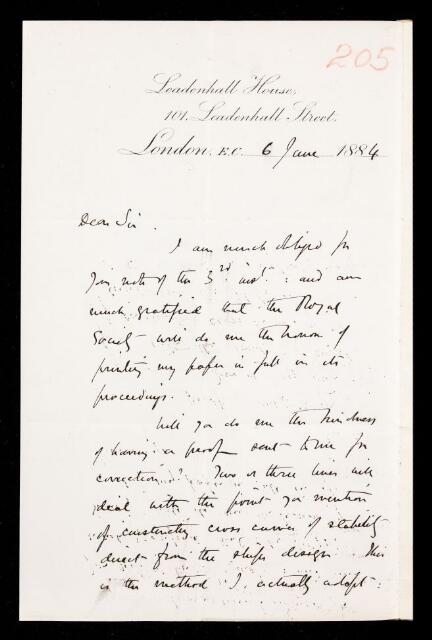 205
Leadenhall House.
101. Leadenhall Street.
London. E.C. 6 June 1884
Dear Sir.
I am much obliged for
your note of the 3rd inst: and am
much gratified that the Royal
Society will do me the honor of
printing my paper in full in its
proceedings.
Will you do me the kindness
of having a proof sent to me for
correction? Two or three lines will
deal with the point you mention
of constructing cross curves of stability
direct from the ships design. This
is the method I actually adopt: